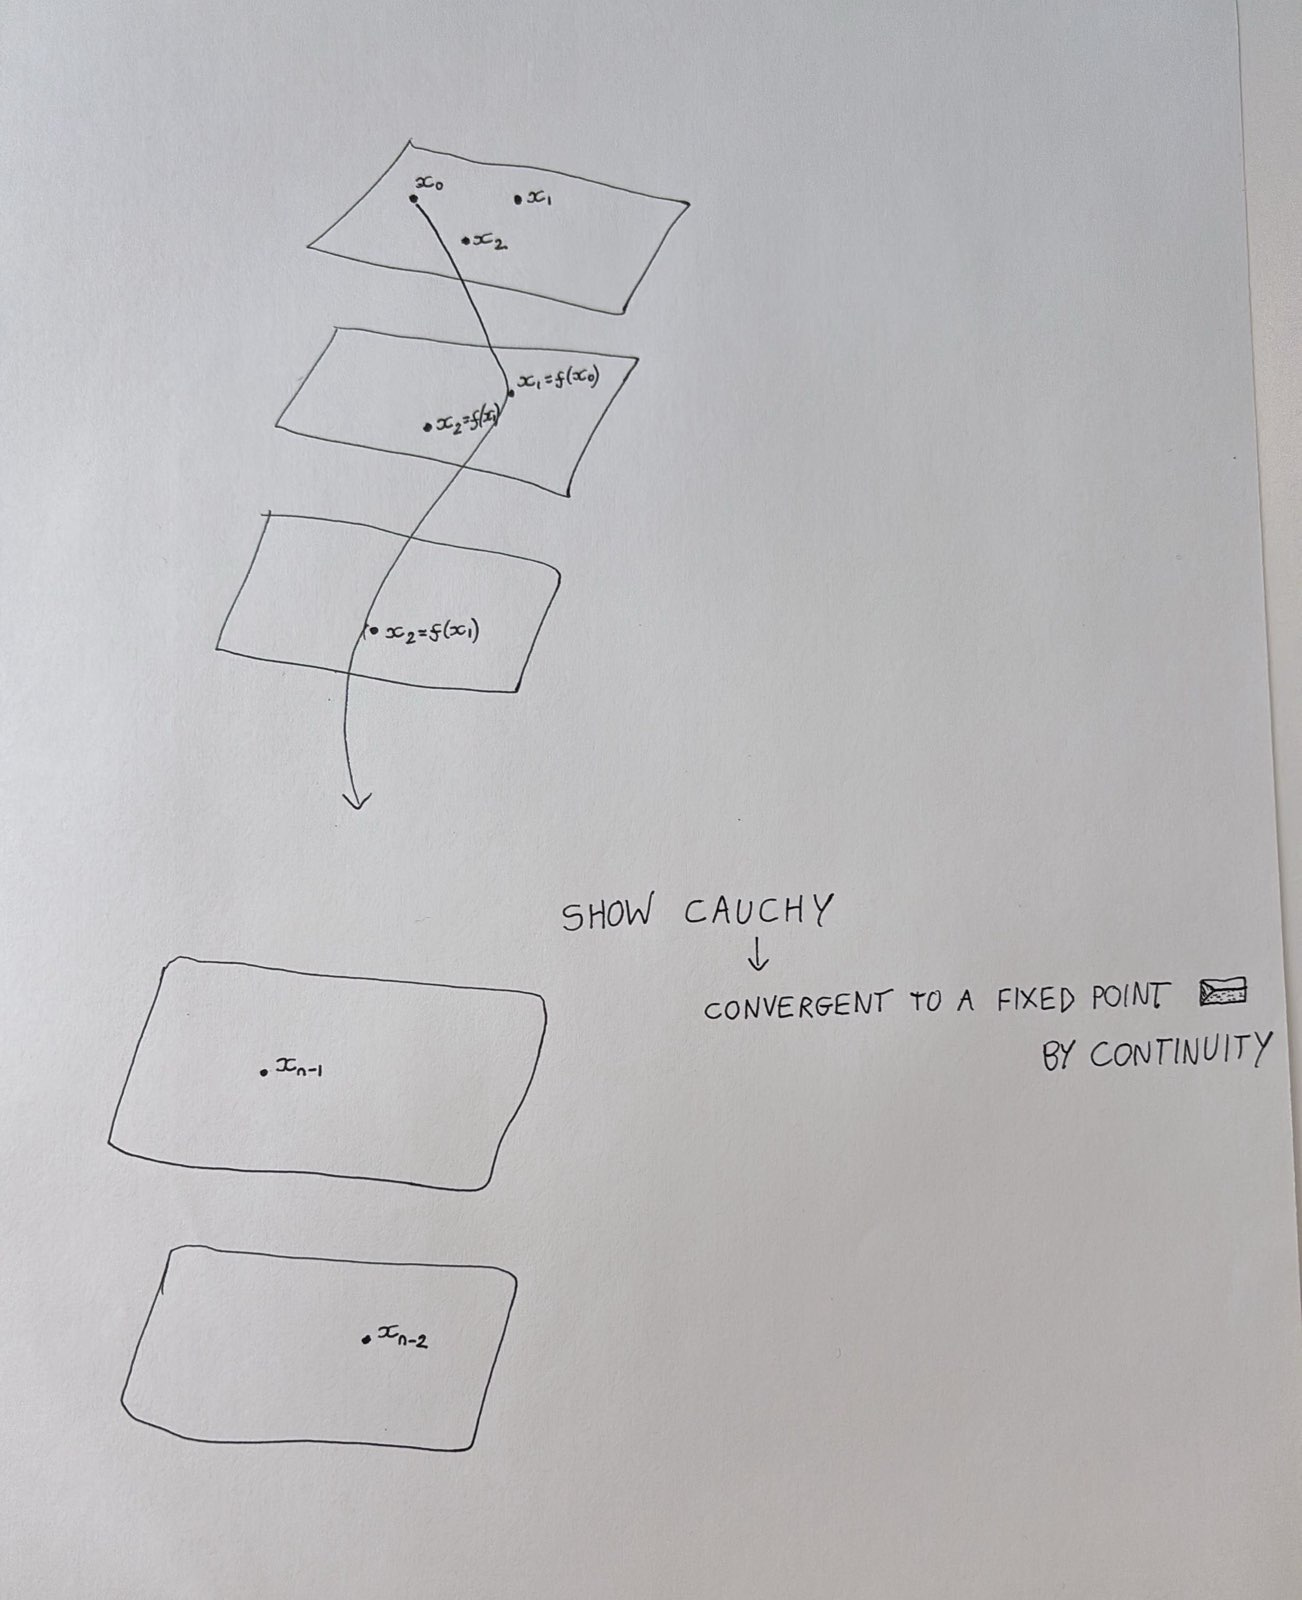 x₀
x₁
x₂
x₁=f(x₀)
x₂=f(x₁)
x₂=f(x₁)
SHOW CAUCHY
↓
CONVERGENT TO A FIXED POINT
BY CONTINUITY
xₙ₋₁
xₙ₋₂